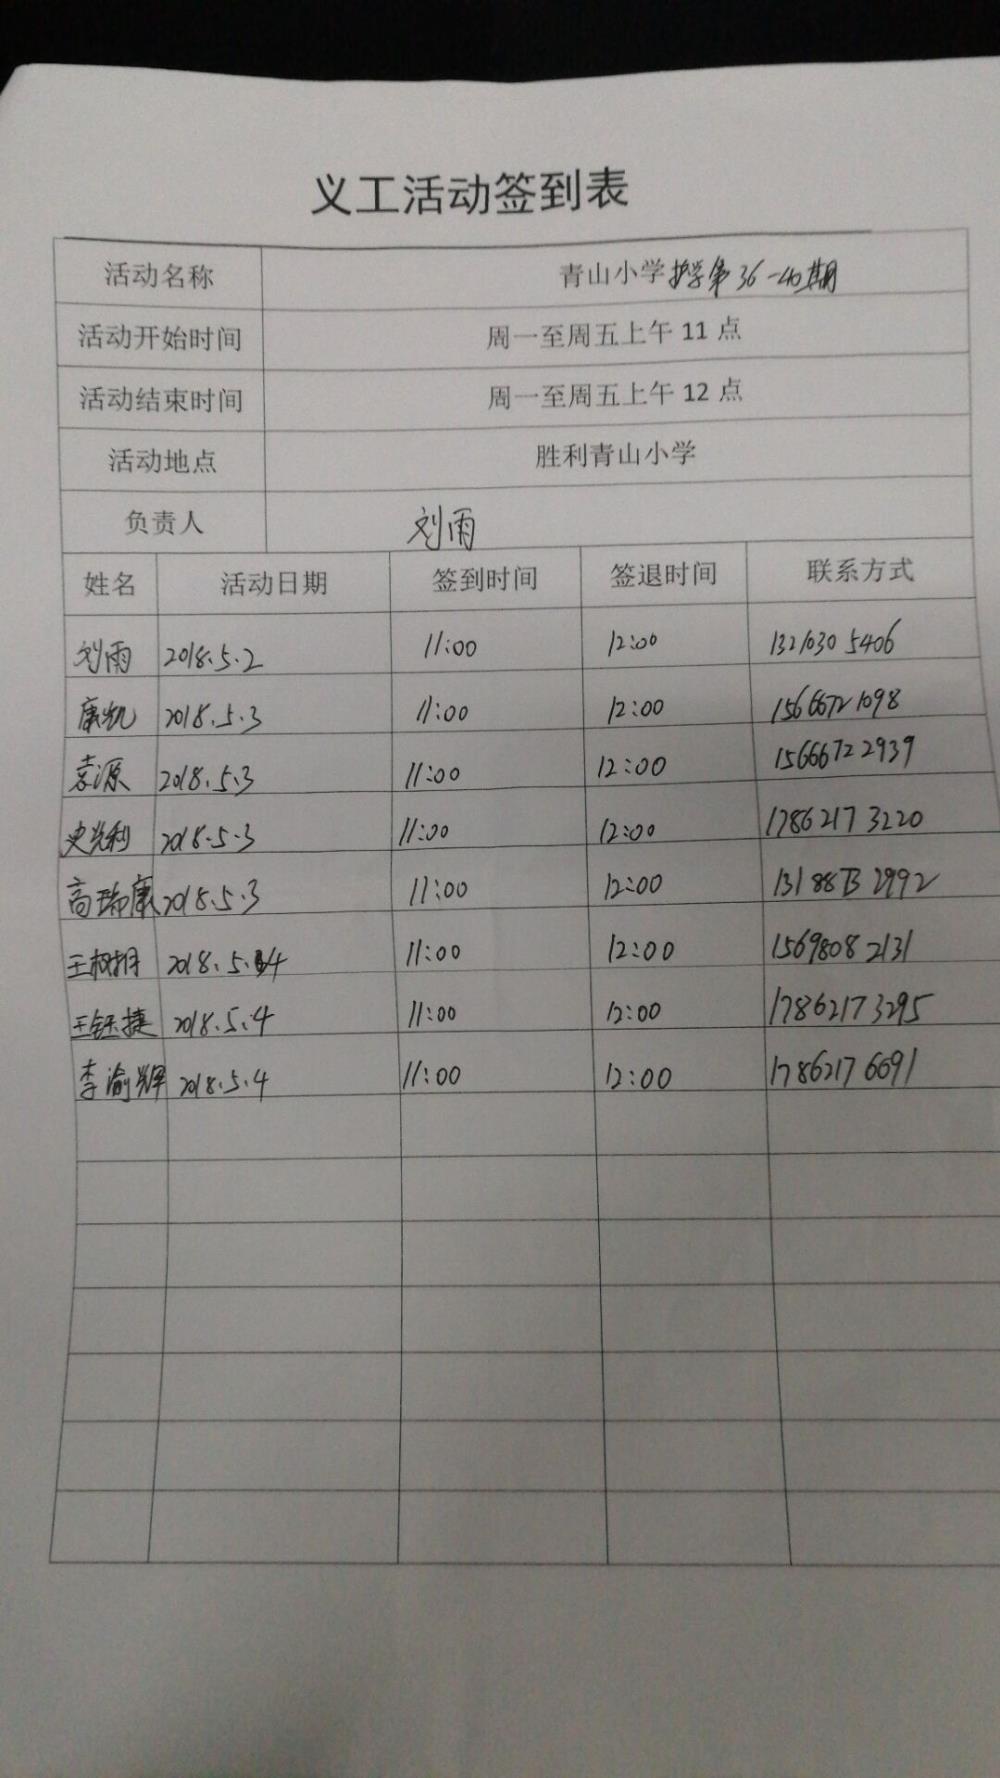 义工活动签到表
活动名称 青山小学护学第36-40期
活动开始时间 周一至周五上午11点
活动结束时间 周一至周五上午12点
活动地点 胜利青山小学
负责人 刘雨
姓名 活动日期 签到时间 签退时间 联系方式
刘雨 2018.5.2 11:00 12:00 13210305406
康凯 2018.5.3 11:00 12:00 15666721098
袁源 2018.5.3 11:00 12:00 15666722939
史光利 2018.5.3 11:00 12:00 17862173220
高瑞康 2018.5.3 11:00 12:00 2992
2018.5.4 11:00 12:00 15698082131
王钰捷 2018.5.4 11:00 12:00 17862173295
李渝辉 2018.5.4 11:00 12:00 17862176691